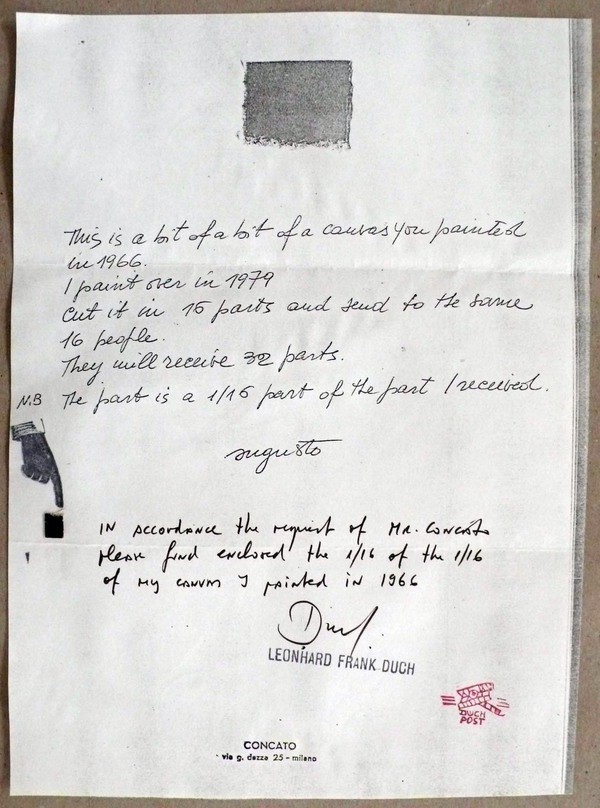 This is a bit of a bit of a canvas you painted
in 1966.
I paint over in 1979
Cut it in 16 parts and send to the same
16 people.
They will receive 32 parts.
N.B The part is a 1/16 part of the part I received.
augusto
IN ACCORDANCE the request of MR. CONCATO
please find enclosed the 1/16 of the 1/16
of MY CANVAS I painted IN 1966
Duch
LEONHARD FRANK DUCH
DUCH
POST
CONCATO
via g. dezza 25 - milano